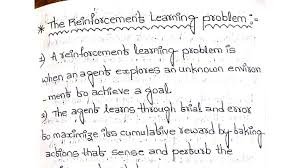 * The Reinforcements Learning problem :-
1) A reinforcements learning problem is
when an agents explores an unknown environ
-ments to achieve a goal.
2) The agents learns through trial and error
to maximize its cumulative reward by taking
actions thats sense and perturb the